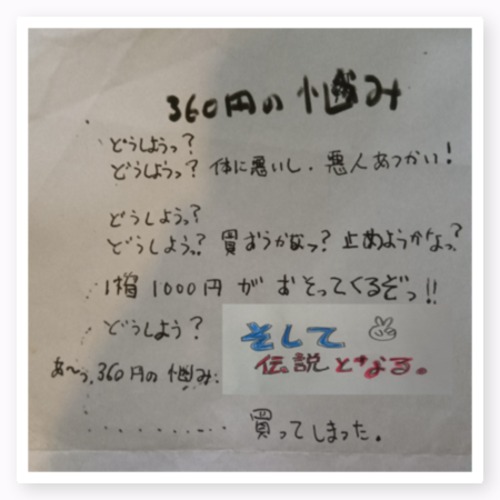 360円の悩み
どうしようっ?
どうしようっ? 体に悪いし、悪人あつかい!
どうしようっ?
どうしようっ? 買おうかなっ? 止めようかなっ?
1箱 1000円 が おそってくるぞっ!!
どうしよう?
そして
伝説となる。
あ〜っ、360円の悩み:
.......... 買ってしまった。